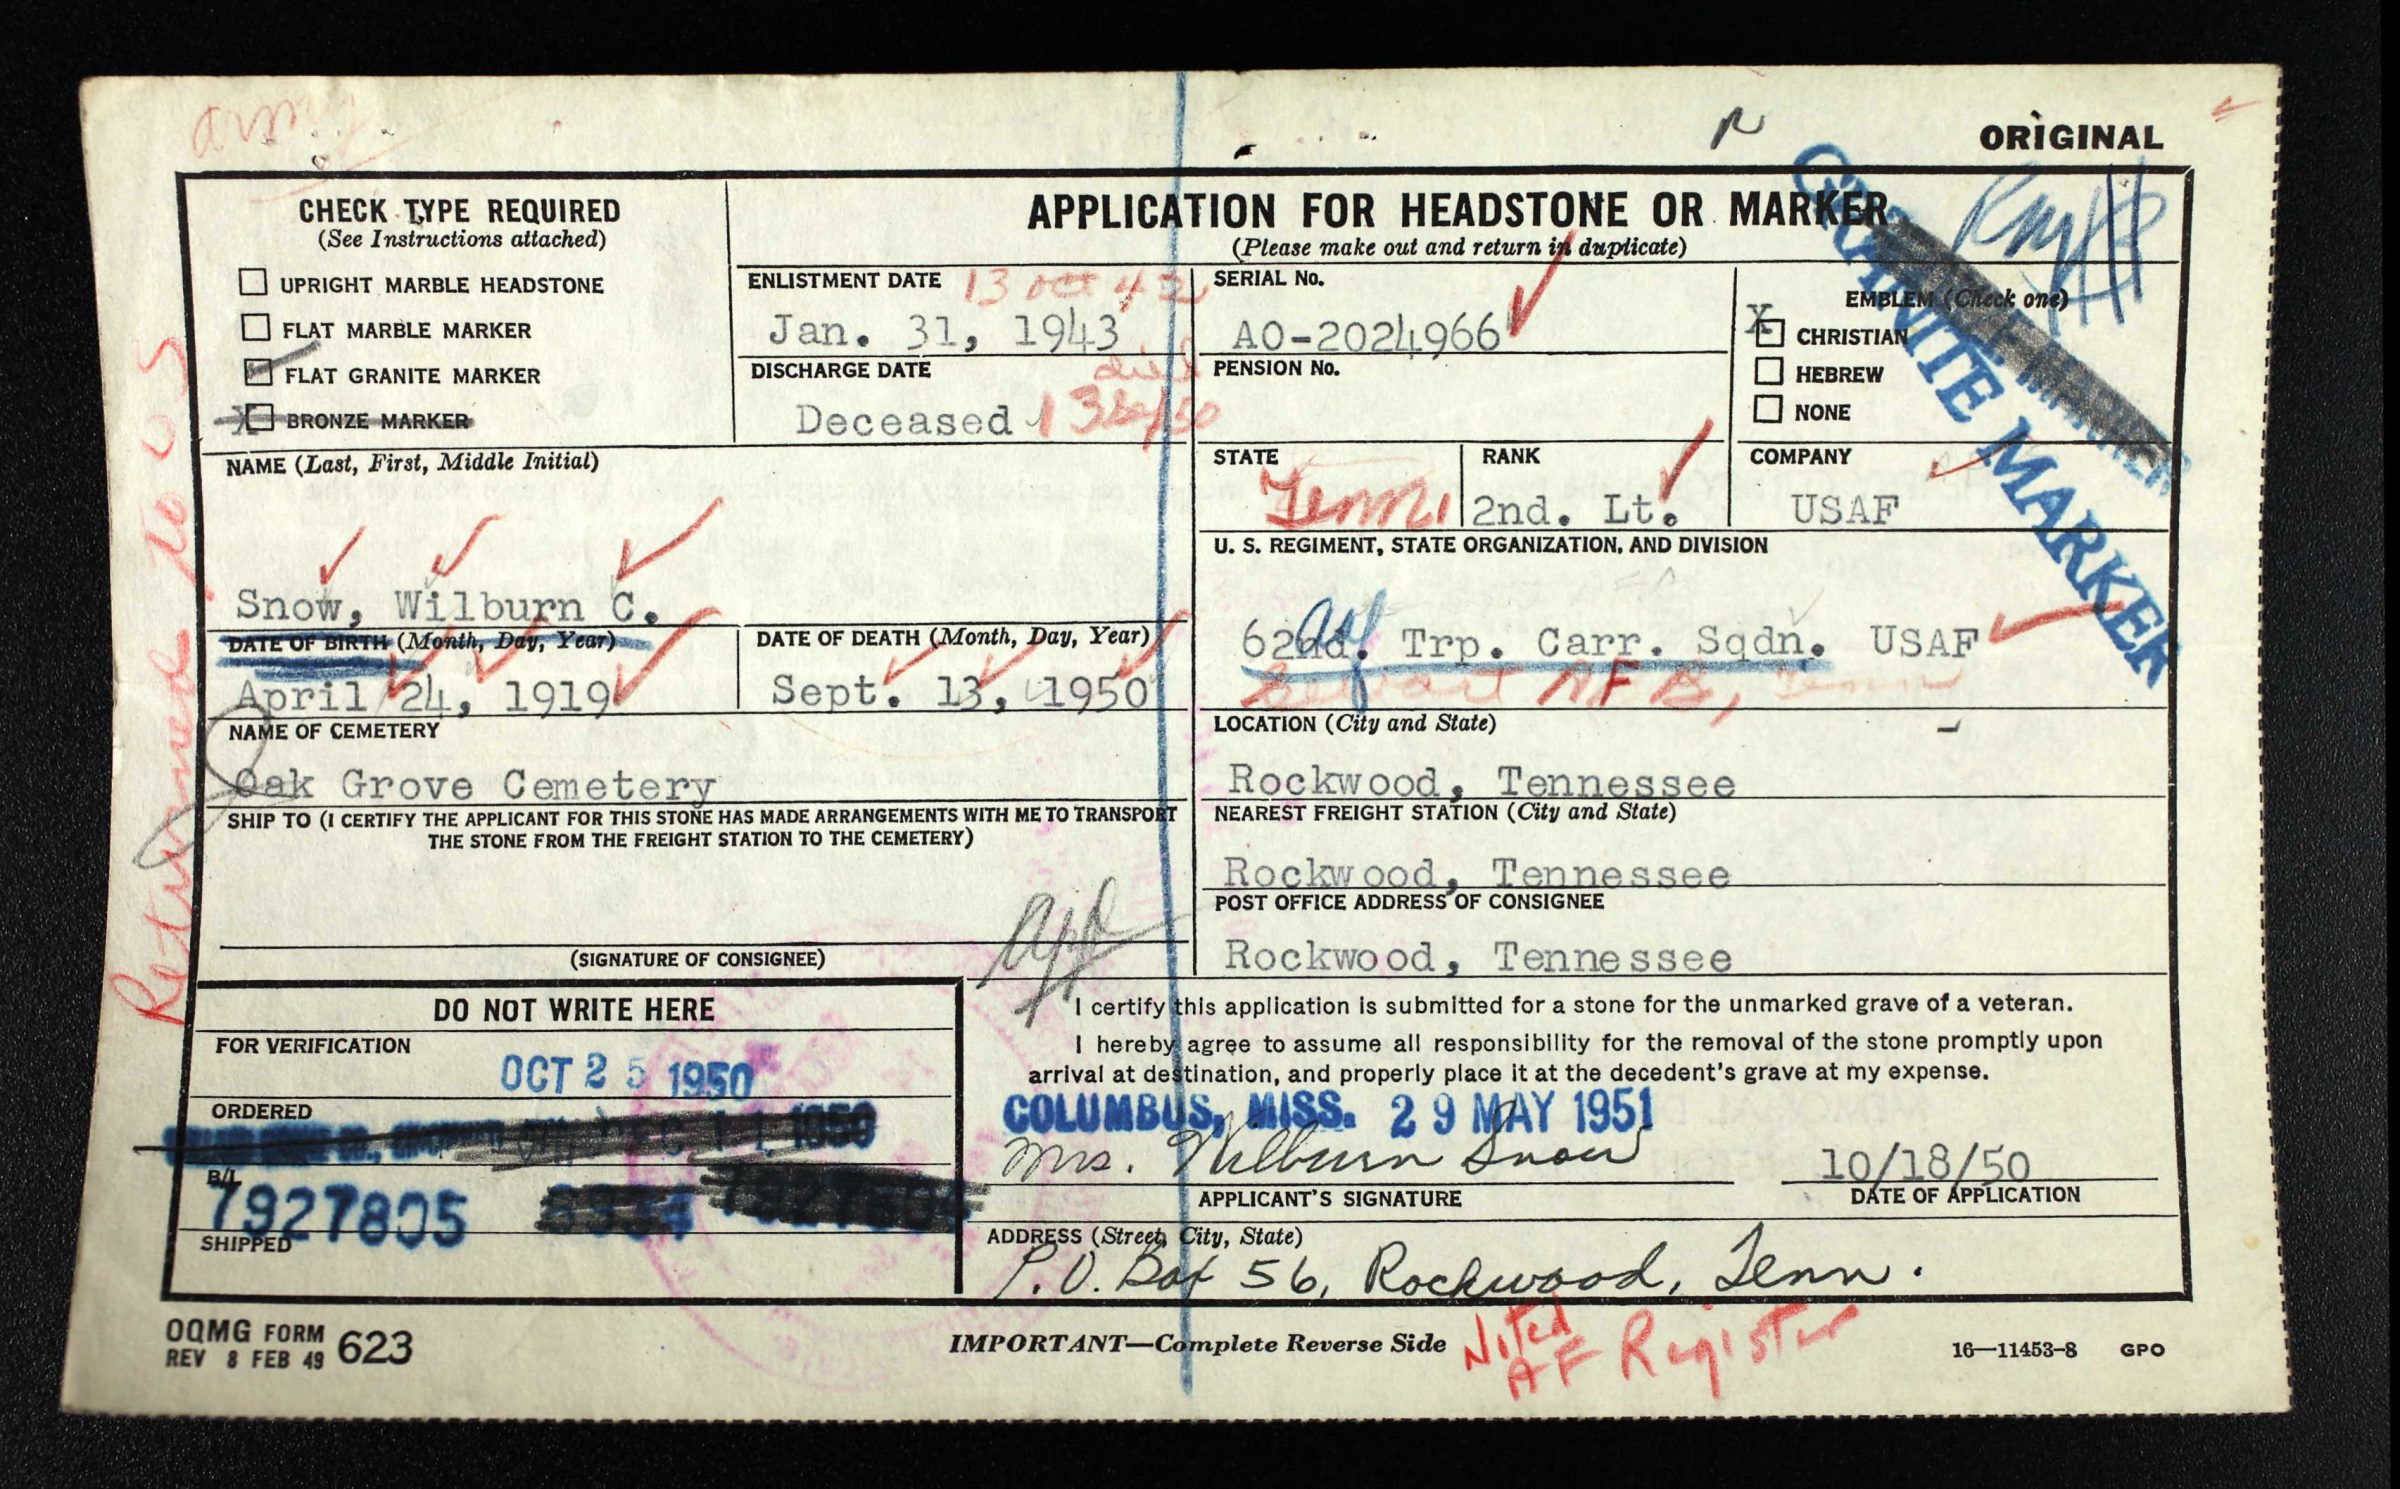 army
ORIGINAL
CHECK TYPE REQUIRED
(See Instructions attached)
UPRIGHT MARBLE HEADSTONE
FLAT MARBLE MARKER
FLAT GRANITE MARKER
X BRONZE MARKER
APPLICATION FOR HEADSTONE OR MARKER
(Please make out and return in duplicate)
GRANITE MARKER
ENLISTMENT DATE 13 Oct 42
Jan. 31, 1943
DISCHARGE DATE
died
Deceased
SERIAL No.
AO-2024966
PENSION No.
EMBLEM (Check one)
X CHRISTIAN
HEBREW
NONE
NAME (Last, First, Middle Initial)
Snow, Wilburn C.
STATE
Tenn.
RANK
2nd. Lt.
COMPANY
USAF
U. S. REGIMENT, STATE ORGANIZATION, AND DIVISION
62nd. Trp. Carr. Sqdn. USAF
Sewart AFB, Tenn
DATE OF BIRTH (Month, Day, Year)
April 24, 1919
DATE OF DEATH (Month, Day, Year)
Sept. 13, 1950
NAME OF CEMETERY
Oak Grove Cemetery
LOCATION (City and State)
Rockwood, Tennessee
SHIP TO (I CERTIFY THE APPLICANT FOR THIS STONE HAS MADE ARRANGEMENTS WITH ME TO TRANSPORT
THE STONE FROM THE FREIGHT STATION TO THE CEMETERY)
(SIGNATURE OF CONSIGNEE)
NEAREST FREIGHT STATION (City and State)
Rockwood, Tennessee
POST OFFICE ADDRESS OF CONSIGNEE
Rockwood, Tennessee
Returned to
DO NOT WRITE HERE
FOR VERIFICATION
OCT 25 1950
ORDERED
DEC 11 1950
B/L
7927805
SHIPPED
I certify this application is submitted for a stone for the unmarked grave of a veteran.
I hereby agree to assume all responsibility for the removal of the stone promptly upon
arrival at destination, and properly place it at the decedent's grave at my expense.
COLUMBUS, MISS. 29 MAY 1951
Mrs. Wilburn Snow
10/18/50
APPLICANT'S SIGNATURE
DATE OF APPLICATION
ADDRESS (Street, City, State)
P.O. Box 56, Rockwood, Tenn.
OQMG FORM 623
REV 8 FEB 49
IMPORTANT—Complete Reverse Side
Noted
AF Register
16—11453-8 GPO